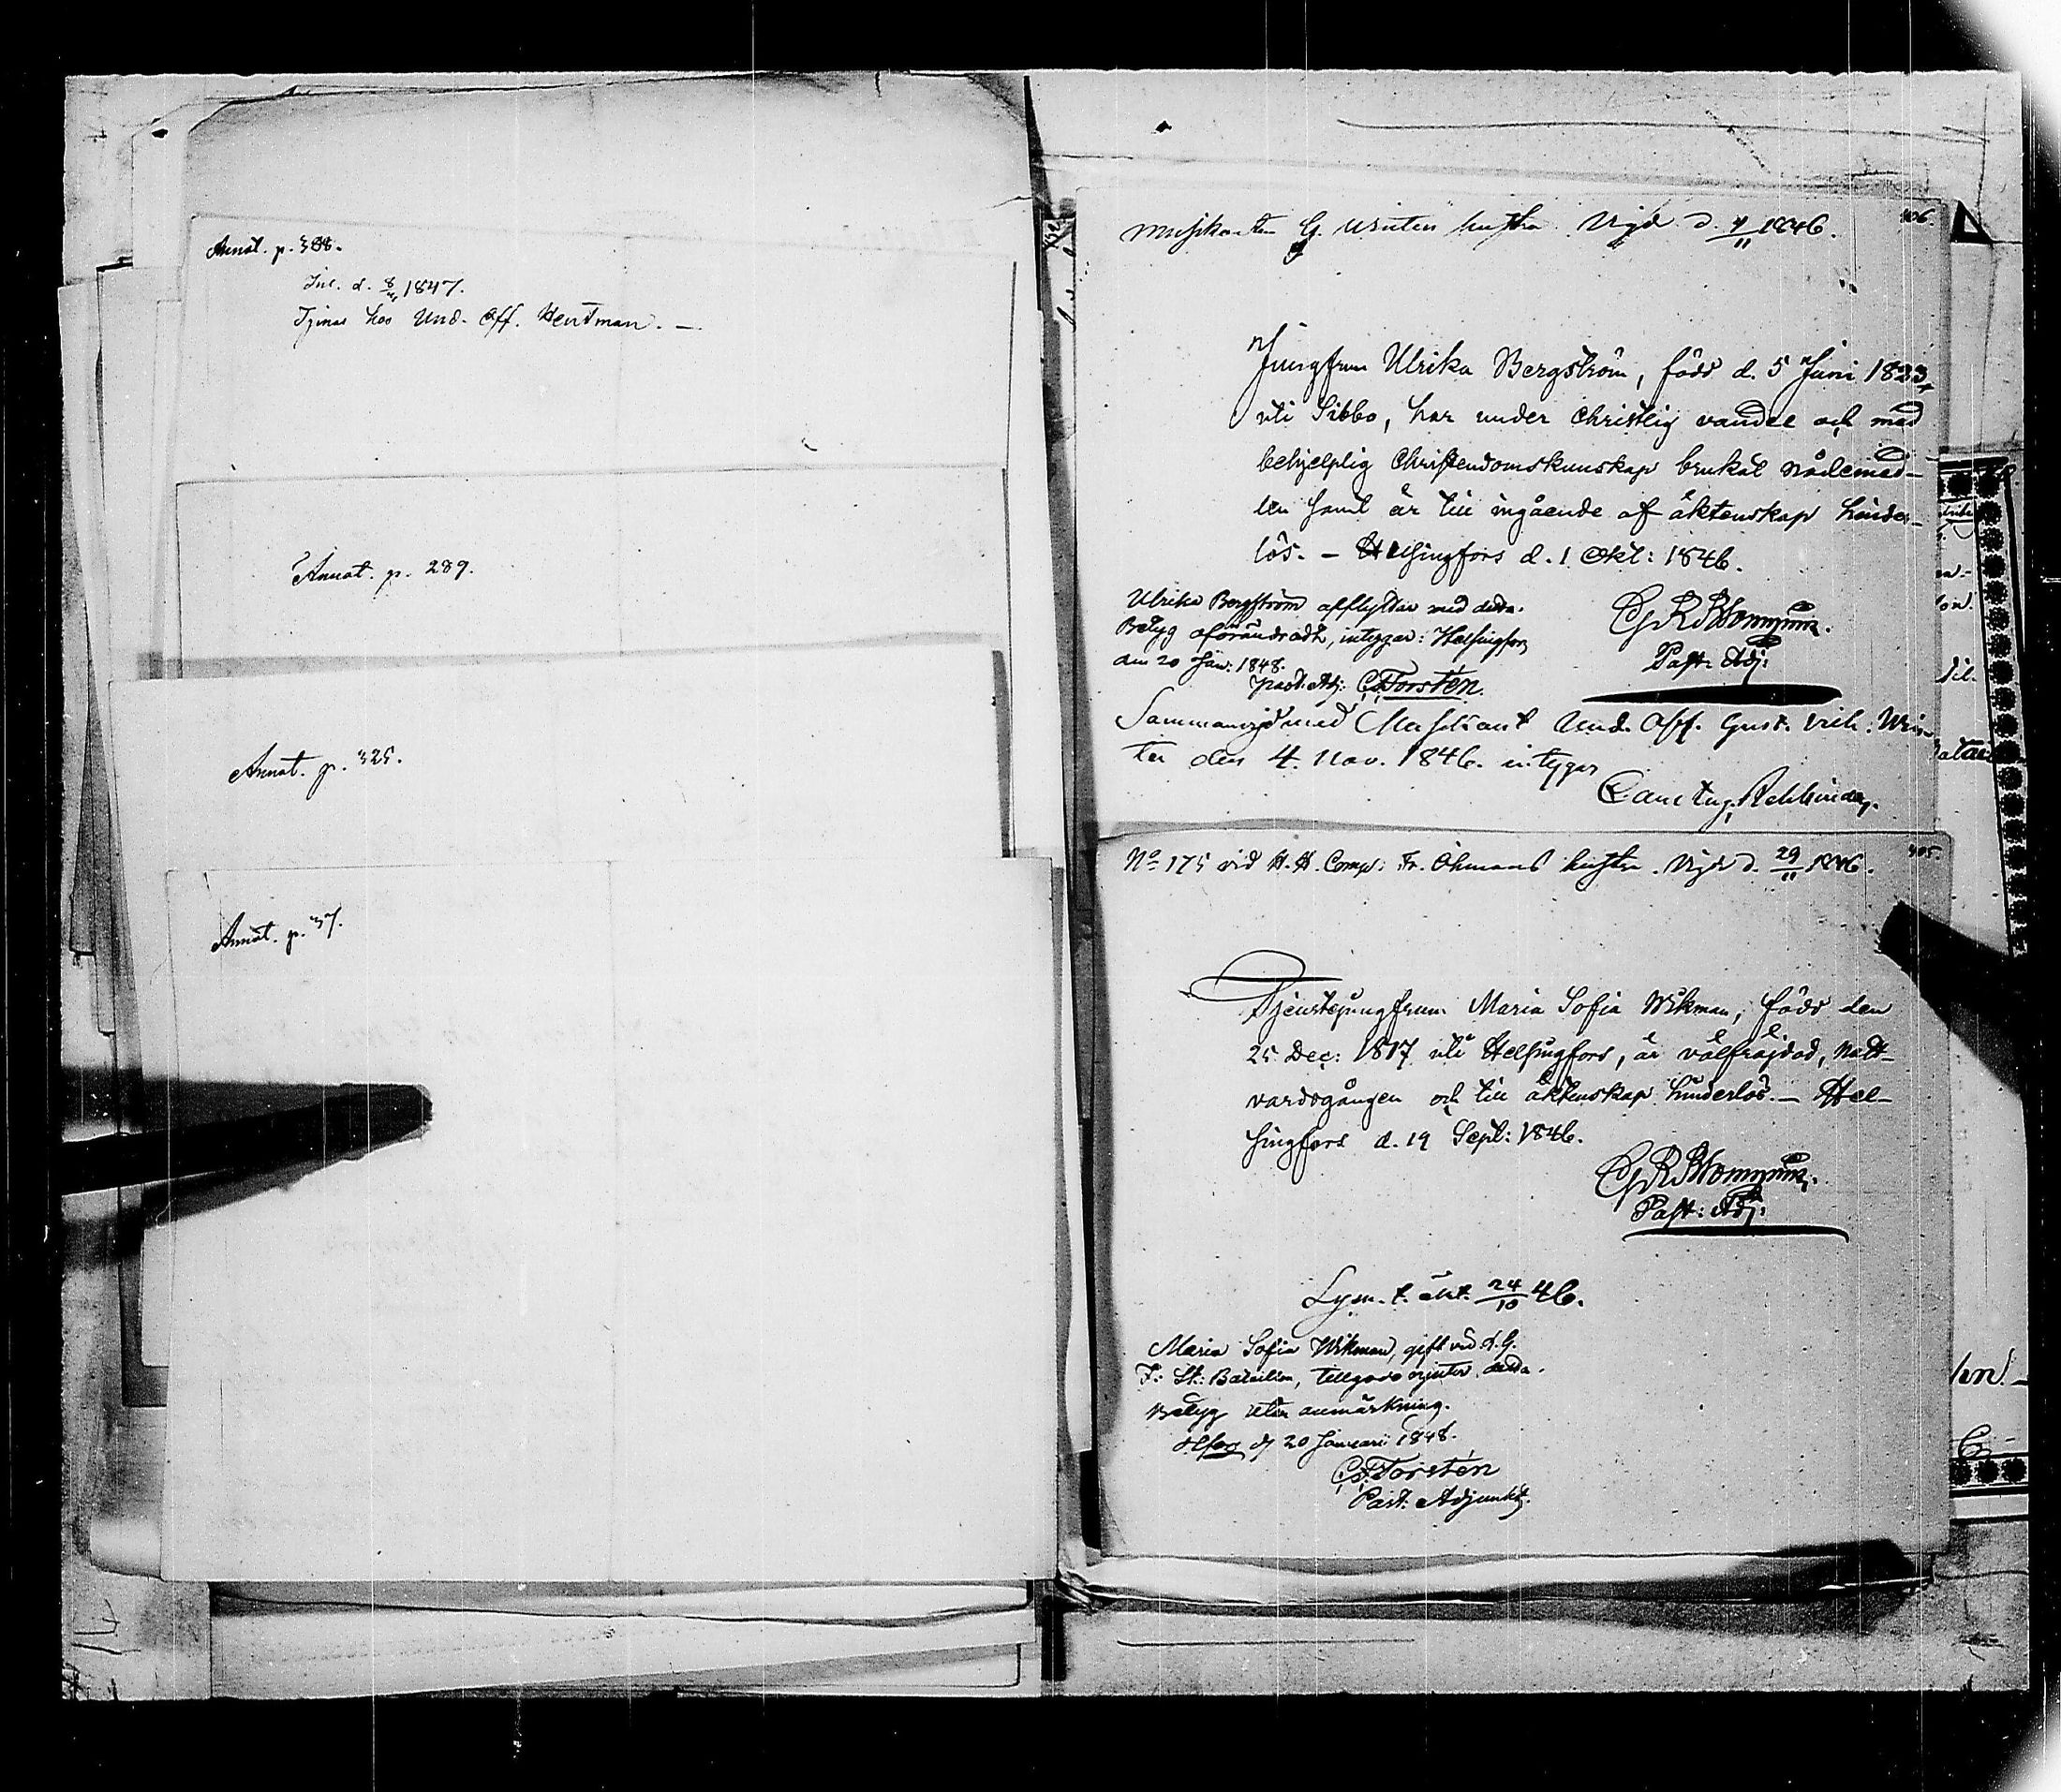 Annot. p. 388.
Inl. d. 8/4 1847.
Tjenar hos Und. Off. Hentman. —
Annot. p. 289.
Annot. p. 325.
Annot. p. 37.
406.
Musikanten G. Winters hustru. Vigd d. 4/11 1846.
Jungfrun Ulrika Bergström, född d. 5 Juni 1823
uti Sibbo, har under Christlig vandel och med
behjelplig Christendomskunskap brukat nådemed-
len samt är till ingående af äktenskap hinder-
lös. — Helsingfors d. 1 Okt: 1846.
G. R. Blommqvist.
Past: Adj:
Ulrika Bergström afflyttar med detta
Betyg oförändradt, intygar: Helsingfors
den 20 Jan: 1848.
Past. Adj: C. Forstén.
Sammanvigd med Musikant Und. Off. Gust. Vilh: Win-
ter den 4. Nov. 1846. intygar
Rehbinder.
405.
No 175 vid H. H. Comp: Fr. Öhmans hustru. Vigd d. 29/11 1846.
Tjenstejungfrun Maria Sofia Wikman, född den
25 Dec: 1817 uti Helsingfors, är välfräjdad, natt-
vardsgången och till äktenskap hinderlös. — Hel-
singfors d. 19 Sept: 1846.
G. R. Blommqvist.
Past: Adj:
Lysn. t. äkt. 24/10 46.
Maria Sofia Wikman, gift vid L. G.
F. St: Bataillon, tillgodo njuter detta
Betyg utan anmärkning.
Hfors d. 20 Januari 1848.
C. Forstén
Past. Adjunkt.